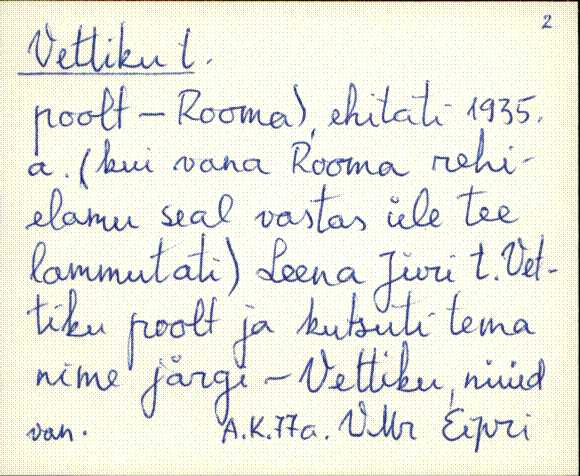 2
Vettiku t.
poolt – Rooma), ehitati 1935.
a. (kui vana Rooma rehi-
elamu seal vastas üle tee
lammutati) Leena Jüri t. Vet-
tiku poolt ja kutsuti tema
nime järgi – Vettiku, nüüd
van. A.K. 77a. VMr Eipri